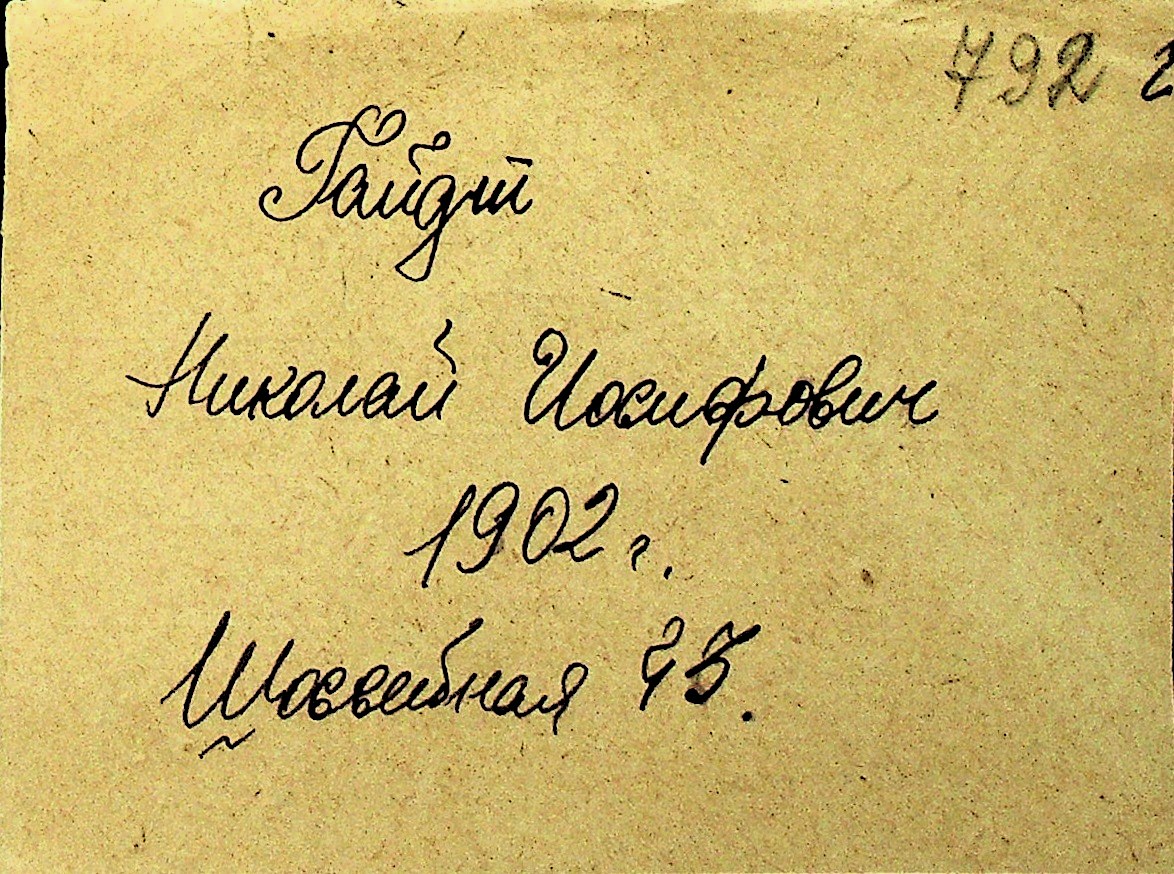 792 2
Гайдт
Николай Иосифович
1902 г.
Шоссейная